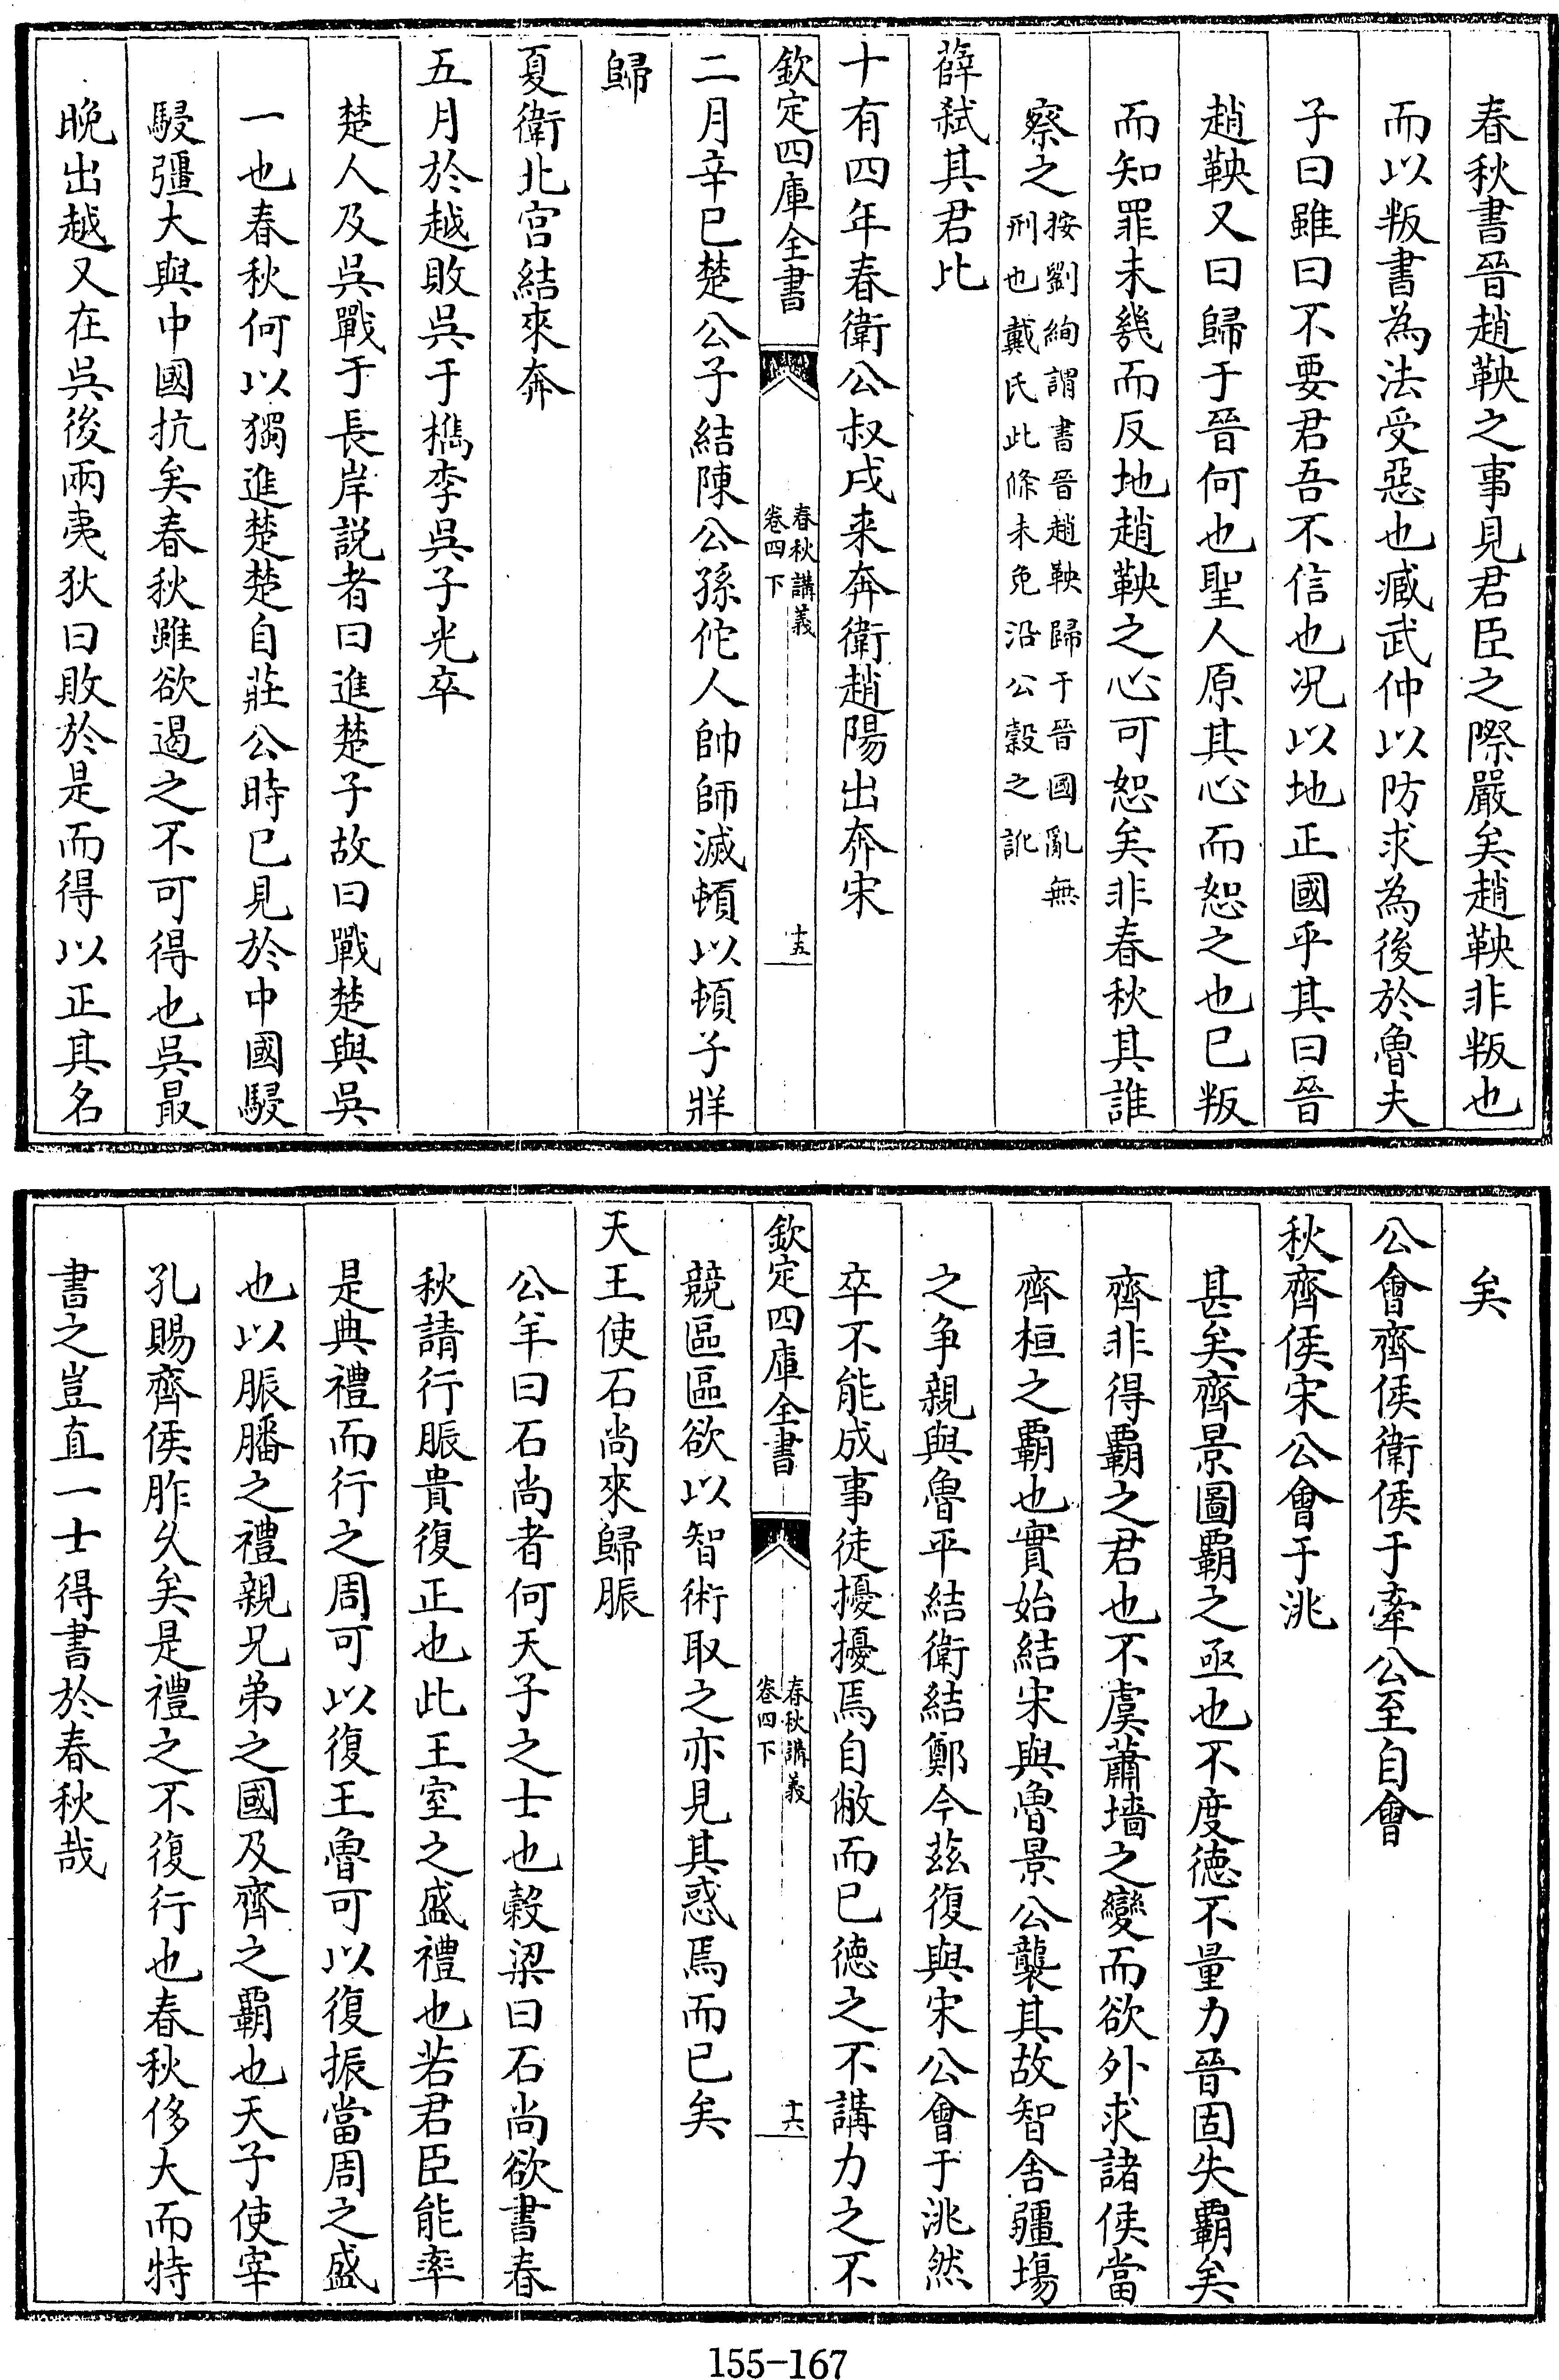 春秋書晉趙鞅之事見君臣之際嚴矣趙鞅非叛也
而以叛書為法受惡也臧武仲以防求為後於魯夫
子曰雖曰不要君吾不信也况以地正國乎其曰晉
趙鞅又曰歸于晉何也聖人原其心而恕之也已叛
而知罪未幾而反地趙鞅之心可恕矣非春秋其誰
察之按劉絢謂書晉趙鞅歸于晉國亂無
刑也戴氏此條未免沿公穀之訛
薛弑其君比
十有四年春衛公叔戌来奔衛趙陽出奔宋
欽定四庫全書
春秋講義
卷四下
十五
二月辛巳楚公子結陳公孫佗人帥師滅頓以頓子牂
歸
夏衛北宫結來奔
五月於越敗吳于檇李吳子光卒
楚人及吳戰于長岸説者曰進楚子故曰戰楚與吳
一也春秋何以獨進楚楚自莊公時已見於中國駸
駸彊大與中國抗矣春秋雖欲遏之不可得也吳最
晚出越又在吳後兩夷狄曰敗於是而得以正其名
矣
公會齊侯衛侯于牽公至自會
秋齊侯宋公會于洮
甚矣齊景圖霸之亟也不度德不量力晉固失霸矣
齊非得霸之君也不虞蕭墻之變而欲外求諸侯當
齊桓之霸也實始結宋與魯景公襲其故智舍疆塲
之争親與魯平結衛結鄭今兹復與宋公會于洮然
卒不能成事徒擾擾焉自敝而已德之不講力之不
欽定四庫全書
春秋講義
卷四下
十六
競區區欲以智術取之亦見其惑焉而已矣
天王使石尚來歸脤
公羊曰石尚者何天子之士也穀梁曰石尚欲書春
秋請行脤貴復正也此王室之盛禮也若君臣能率
是典禮而行之周可以復王魯可以復振當周之盛
也以脤膰之禮親兄弟之國及齊之霸也天子使宰
孔賜齊侯胙久矣是禮之不復行也春秋侈大而特
書之豈直一士得書於春秋哉
155-167